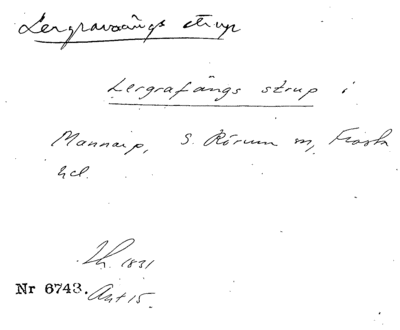 Lergravsängs strup
Lergrafängs strup i
Mannarp, S. Rörum sn, Frosta
hd.
Lh. 1831
Nr 6743. Akt 15.